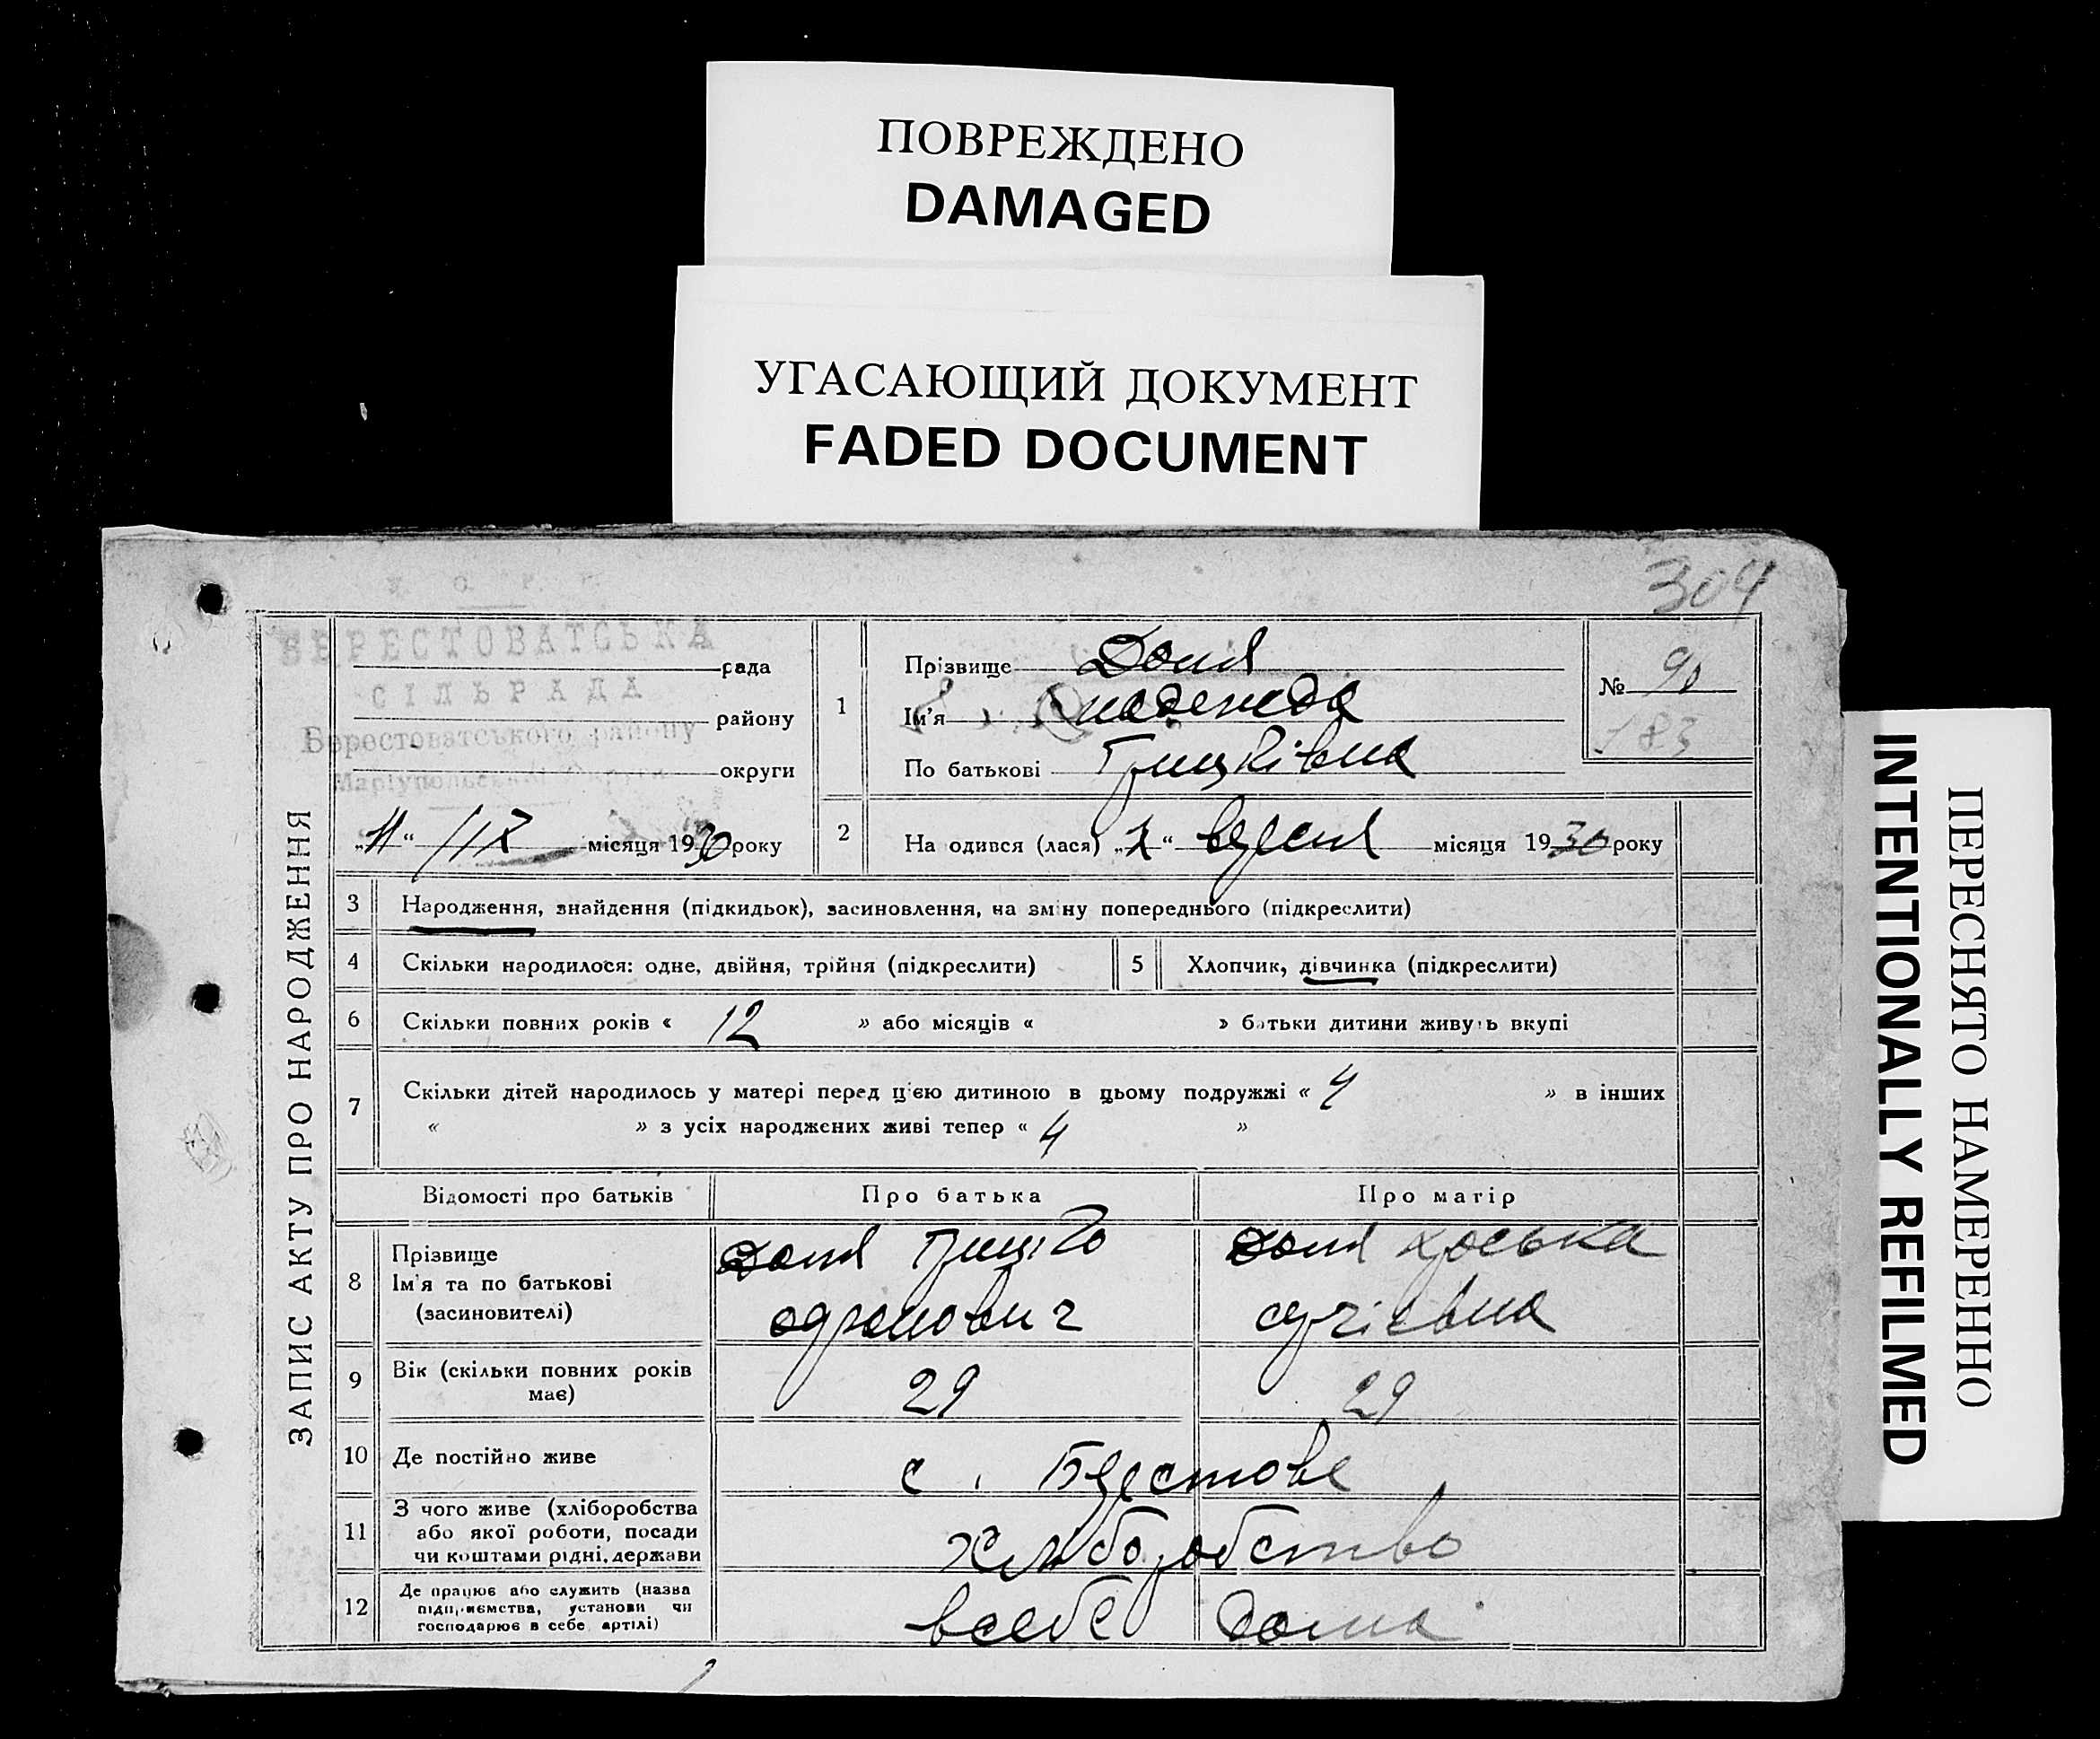 ПОВРЕЖДЕНО
DAMAGED
УГАСАЮЩИЙ ДОКУМЕНТ
FADED DOCUMENT
ПЕРЕСНЯТО НАМЕРЕННО
INTENTIONALLY REFILMED
304
ЗАПИС АКТУ ПРО НАРОДЖЕННЯ
БЕРЕСТОВАТСЬКА
рада
СІЛЬРАДА
району
Берестоватського району
округи
Маріупольської Округи
„11“ /IX місяця 1930 року
1
Прізвище Доля
Ім'я надежда
По батькові Грицківна
№ 90
183
2 На одився (лася) „ “ вересня місяця 1930 року
3 Народження, знайдення (підкидьок), засиновлення, на зміну попереднього (підкреслити)
4 Скільки народилося: одне, двійня, трійня (підкреслити) 5 Хлопчик, дівчинка (підкреслити)
6 Скільки повних років « 12 » або місяців « » батьки дитини живуть вкупі
7 Скільки дітей народилось у матері перед цією дитиною в цьому подружжі « 4 » в інших
« » з усіх народжених живі тепер « 4 »
Відомості про батьків Про батька Про матір
8 Прізвище
Ім'я та по батькові
(засиновителі)
Доля Грицко
Доля
9 Вік (скільки повних років
має) 29 29
10 Де постійно живе с. Берестове
11 З чого живе (хліборобства
або якої роботи, посади
чи коштами рідні, держави
хліборобство
12 Де працює або служить (назва
підприємства, установи чи
господарює в себе артілі)
всебе дома